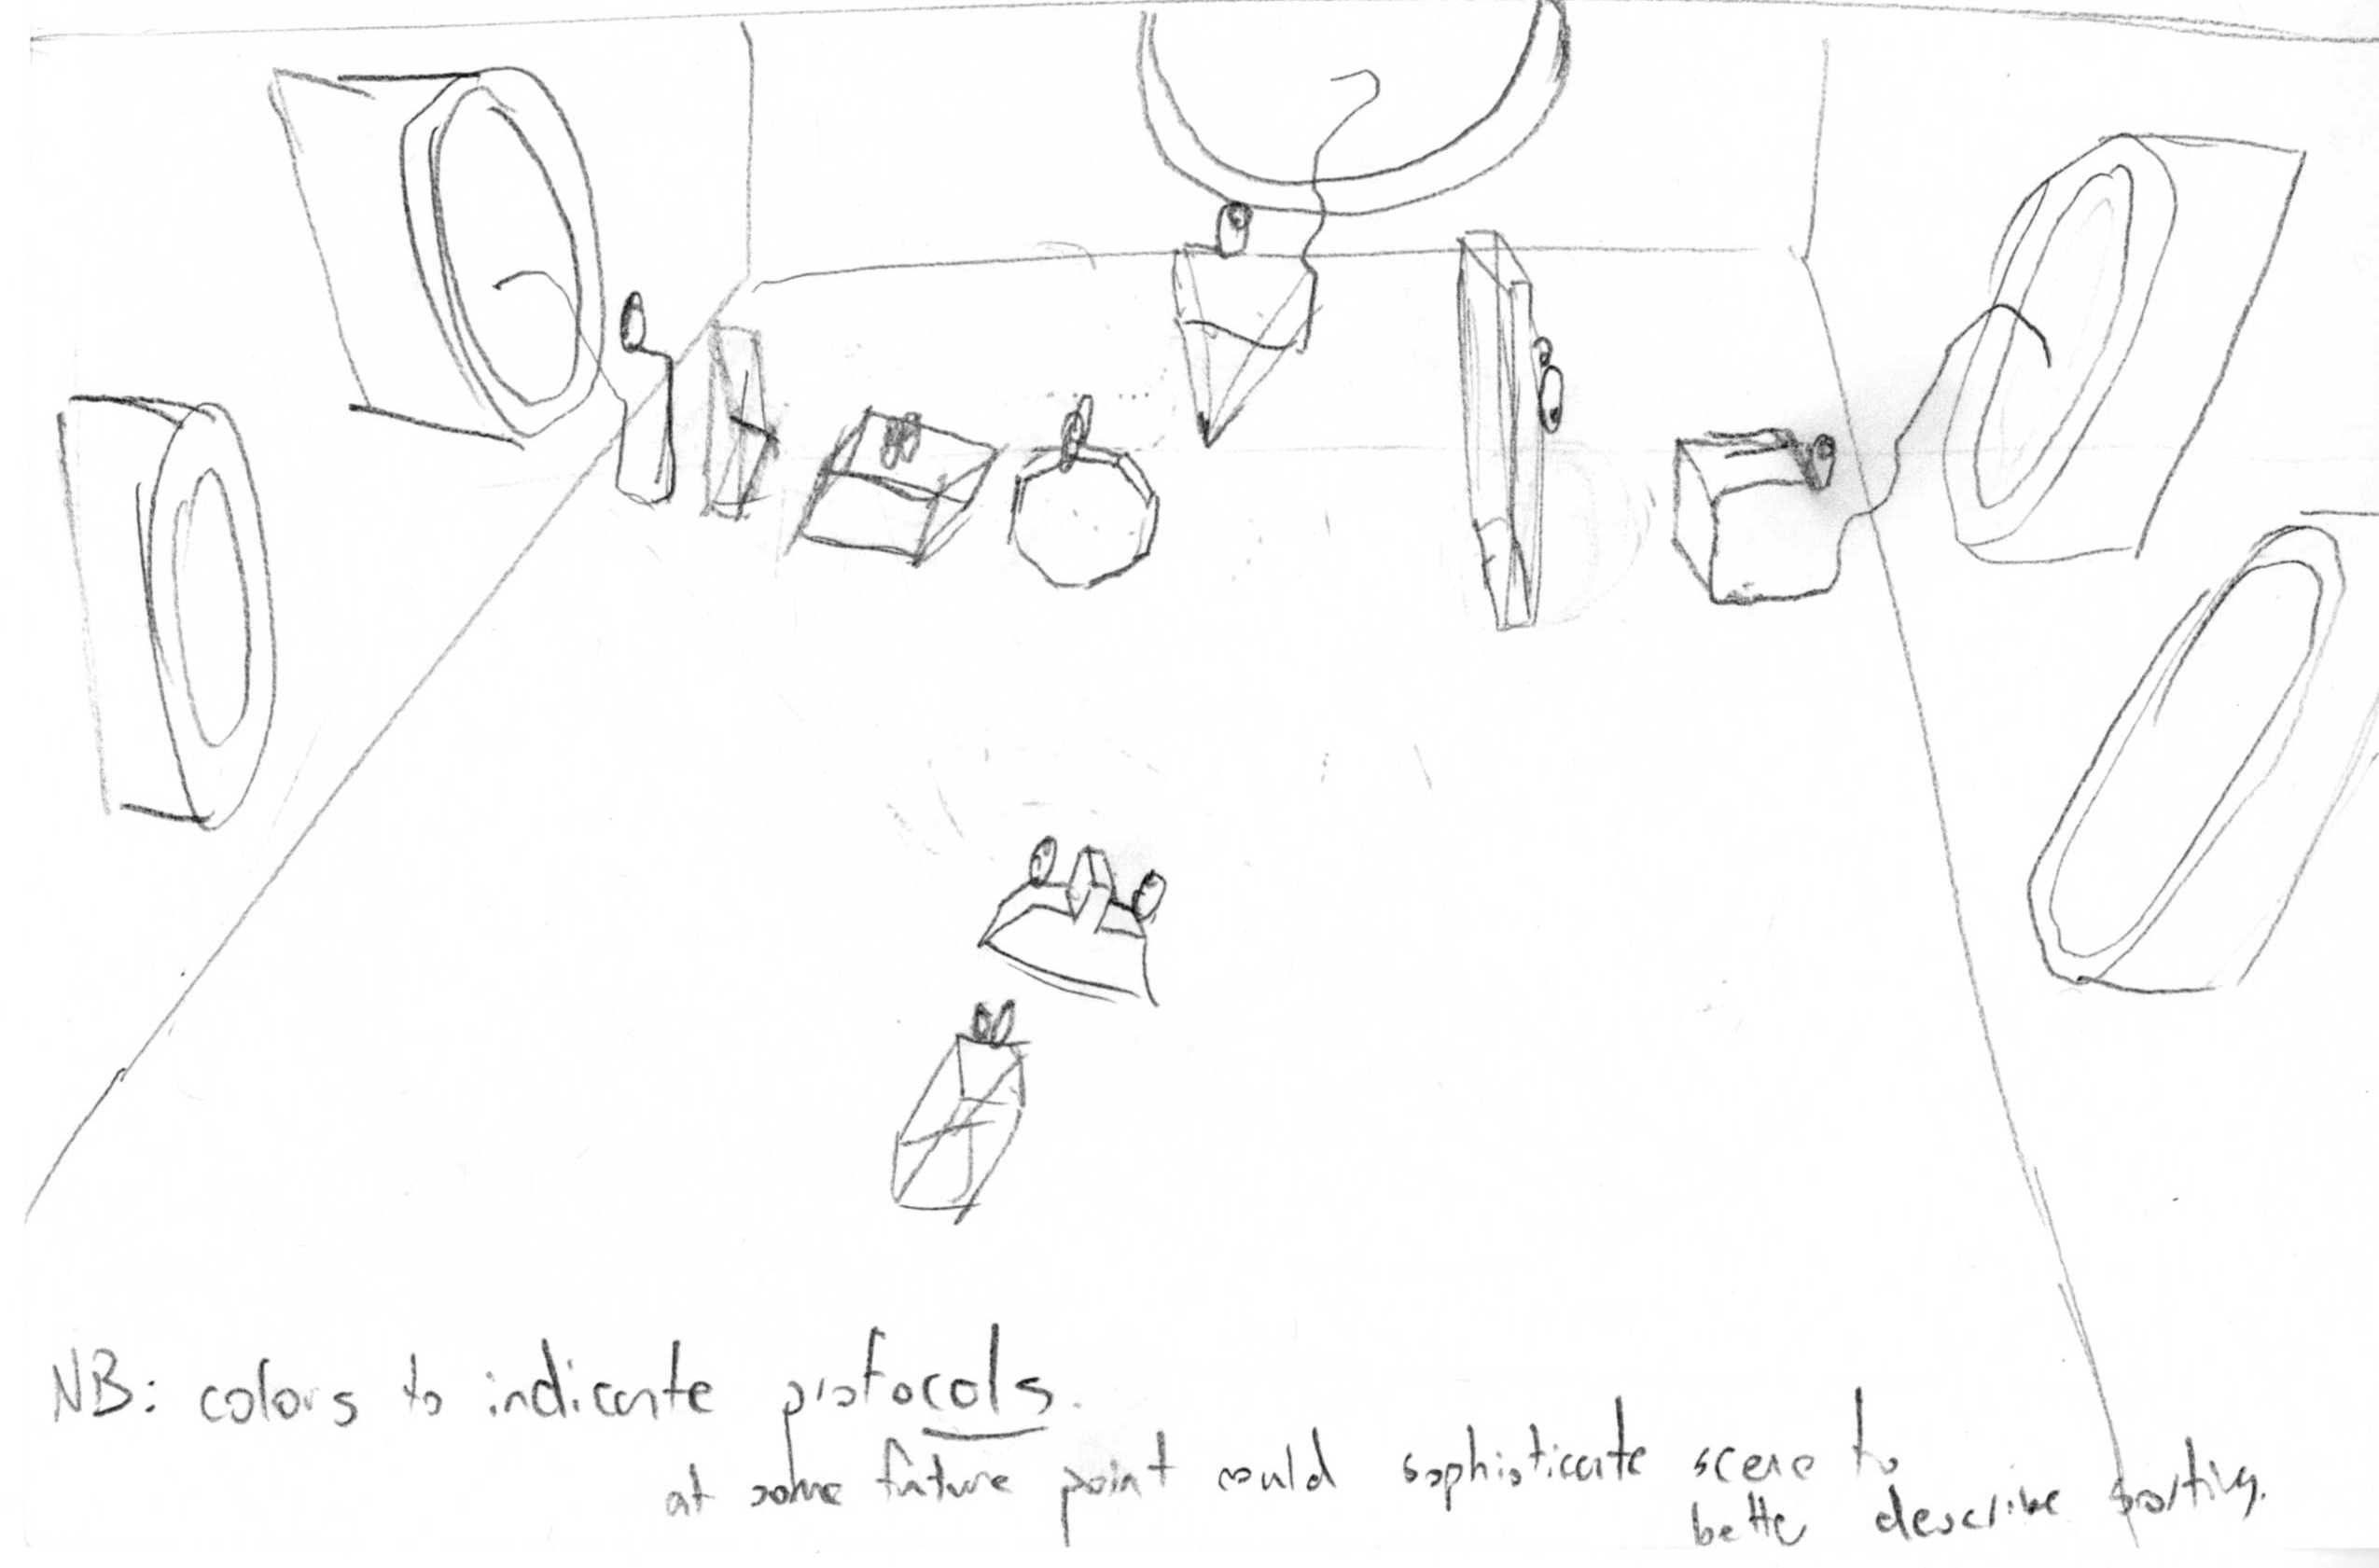 NB: colors to indicate protocols.
at some future point could sophisticate scene to
better describe sorting.